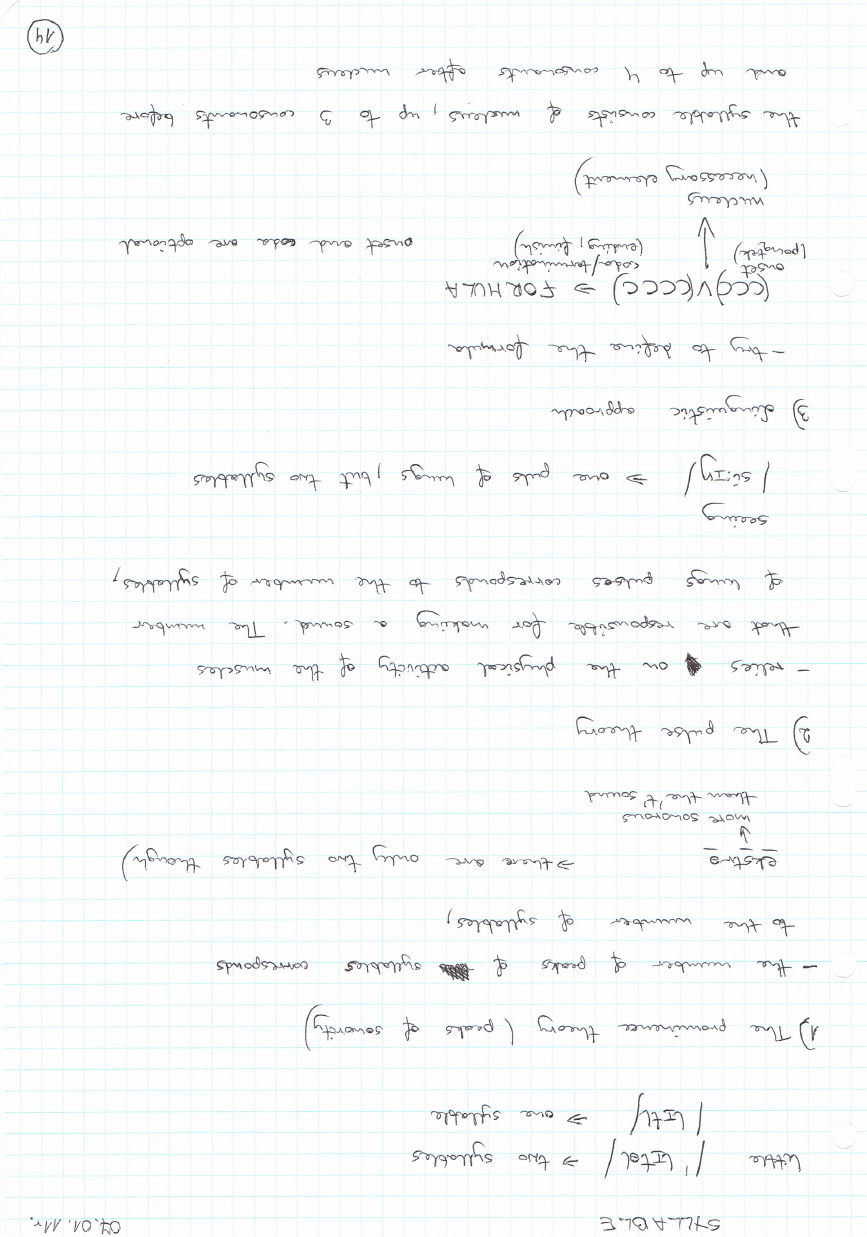 SYLLABLE 07.01.11r.
little /'lɪtəl/ ⇒ two syllables
/lɪtl/ ⇒ one syllable
1) The prominence theory (peaks of sonority)
- the number of peaks of syllables corresponds
to the number of syllables,
ekstrə ⇒ there are only two syllables though)
↓
more sonorous
than the 't' sound
2) The pulse theory
- relies on the physical activity of the muscles
that are responsible for making a sound. The number
of lungs pulses corresponds to the number of syllables,
seeing
/si:ɪŋ/ ⇒ one puls of lungs, but two syllables
3) Linguistic approach
- try to define the formula
(CCC)V(CCCC) ⇒ FORMULA
onset (początek) coda/termination (ending, finish) onset and coda are optional
nucleus
(necessary element)
the syllable consists of nucleus, up to 3 consonants before
and up to 4 consonants after nucleus
14